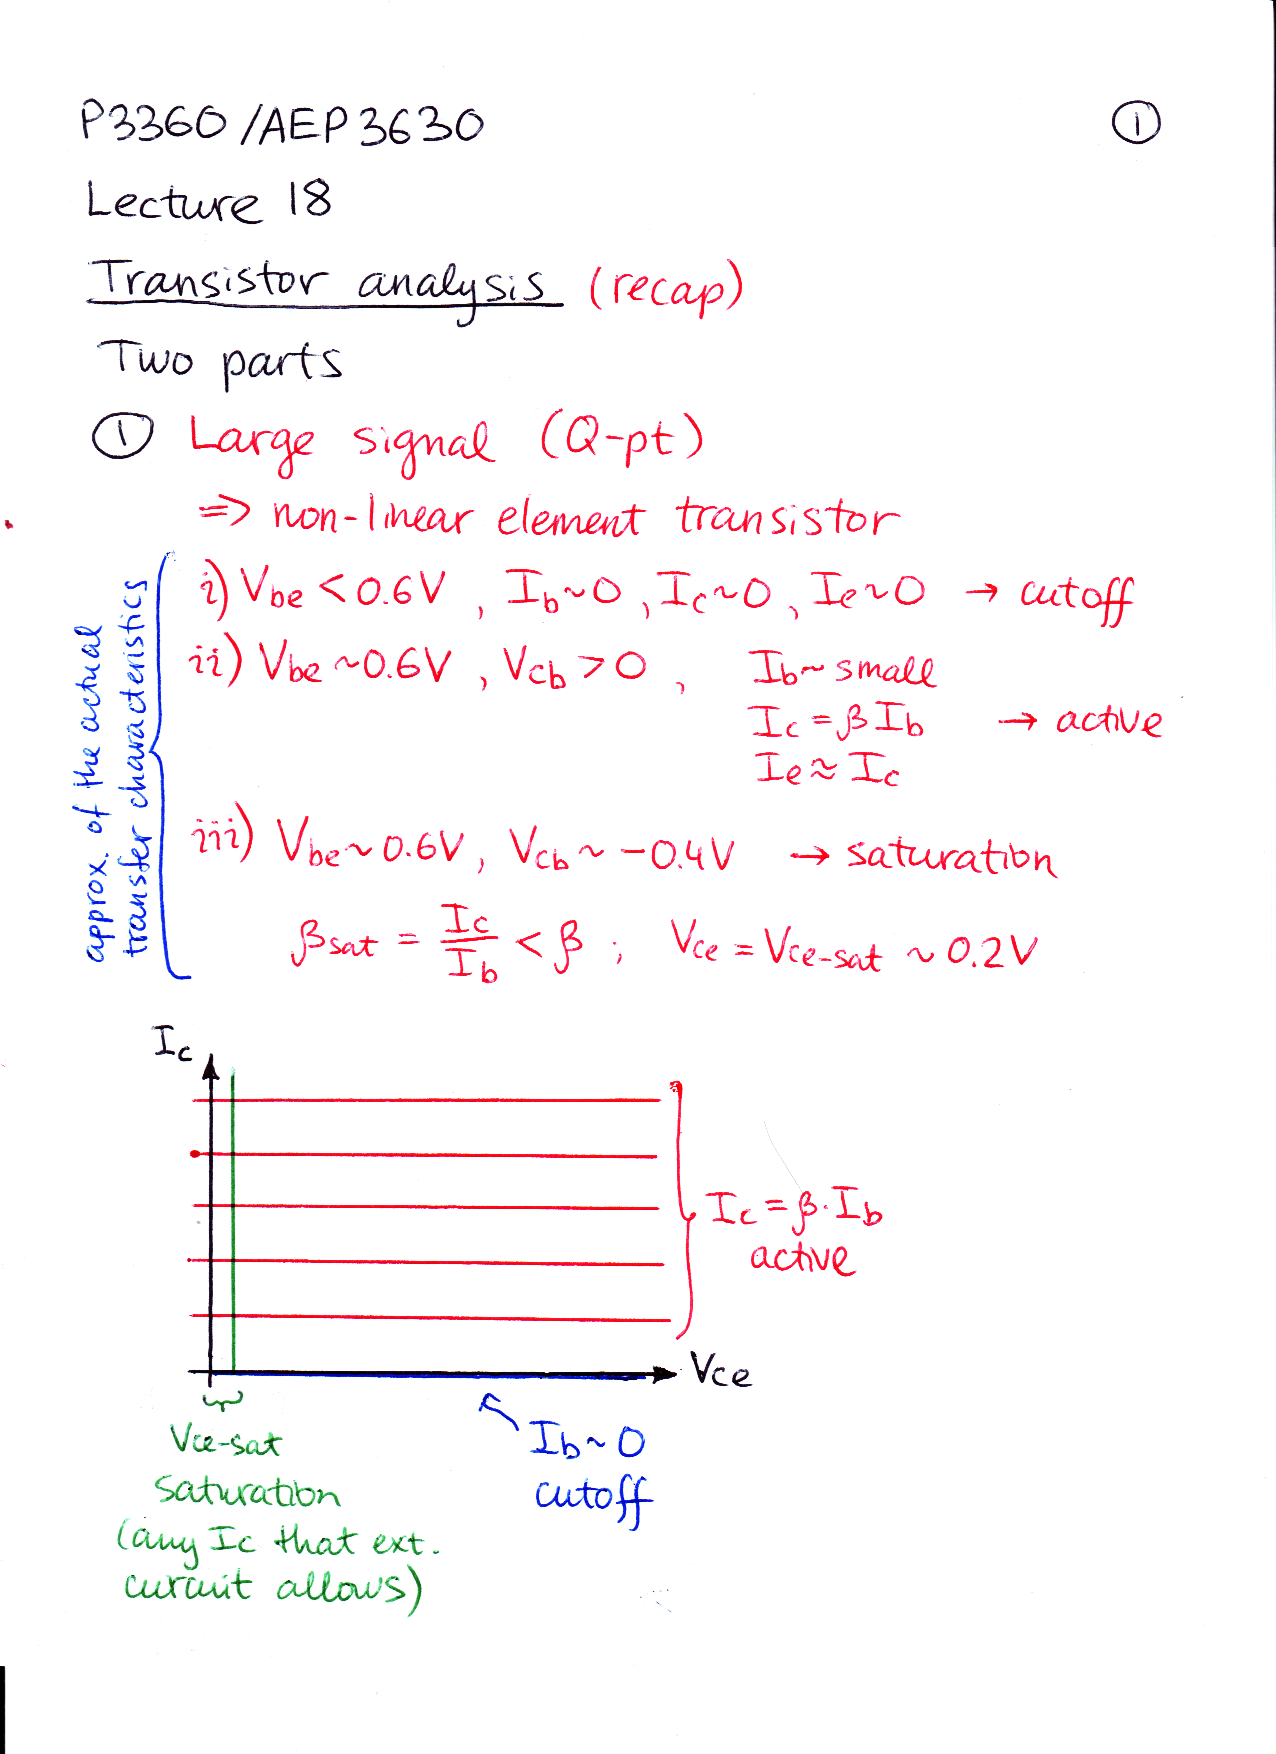 P3360/AEP3630
①
Lecture 18
Transistor analysis (recap)
Two parts
① Large signal (Q-pt)
=> non-linear element transistor
approx. of the actual
transfer characteristics
i) Vbe < 0.6V, Ib~0, Ic~0, Ie~0 → cutoff
ii) Vbe ~0.6V, Vcb > 0, Ib~ small
Ic = βIb → active
Ie ≈ Ic
iii) Vbe ~ 0.6V, Vcb ~ -0.4V → saturation
βsat = Ic/Ib < β ; Vce = Vce-sat ~ 0.2V
Ic
Ic = β·Ib
active
Vce
Vce-sat
saturation
(any Ic that ext.
curcuit allows)
Ib~0
cutoff